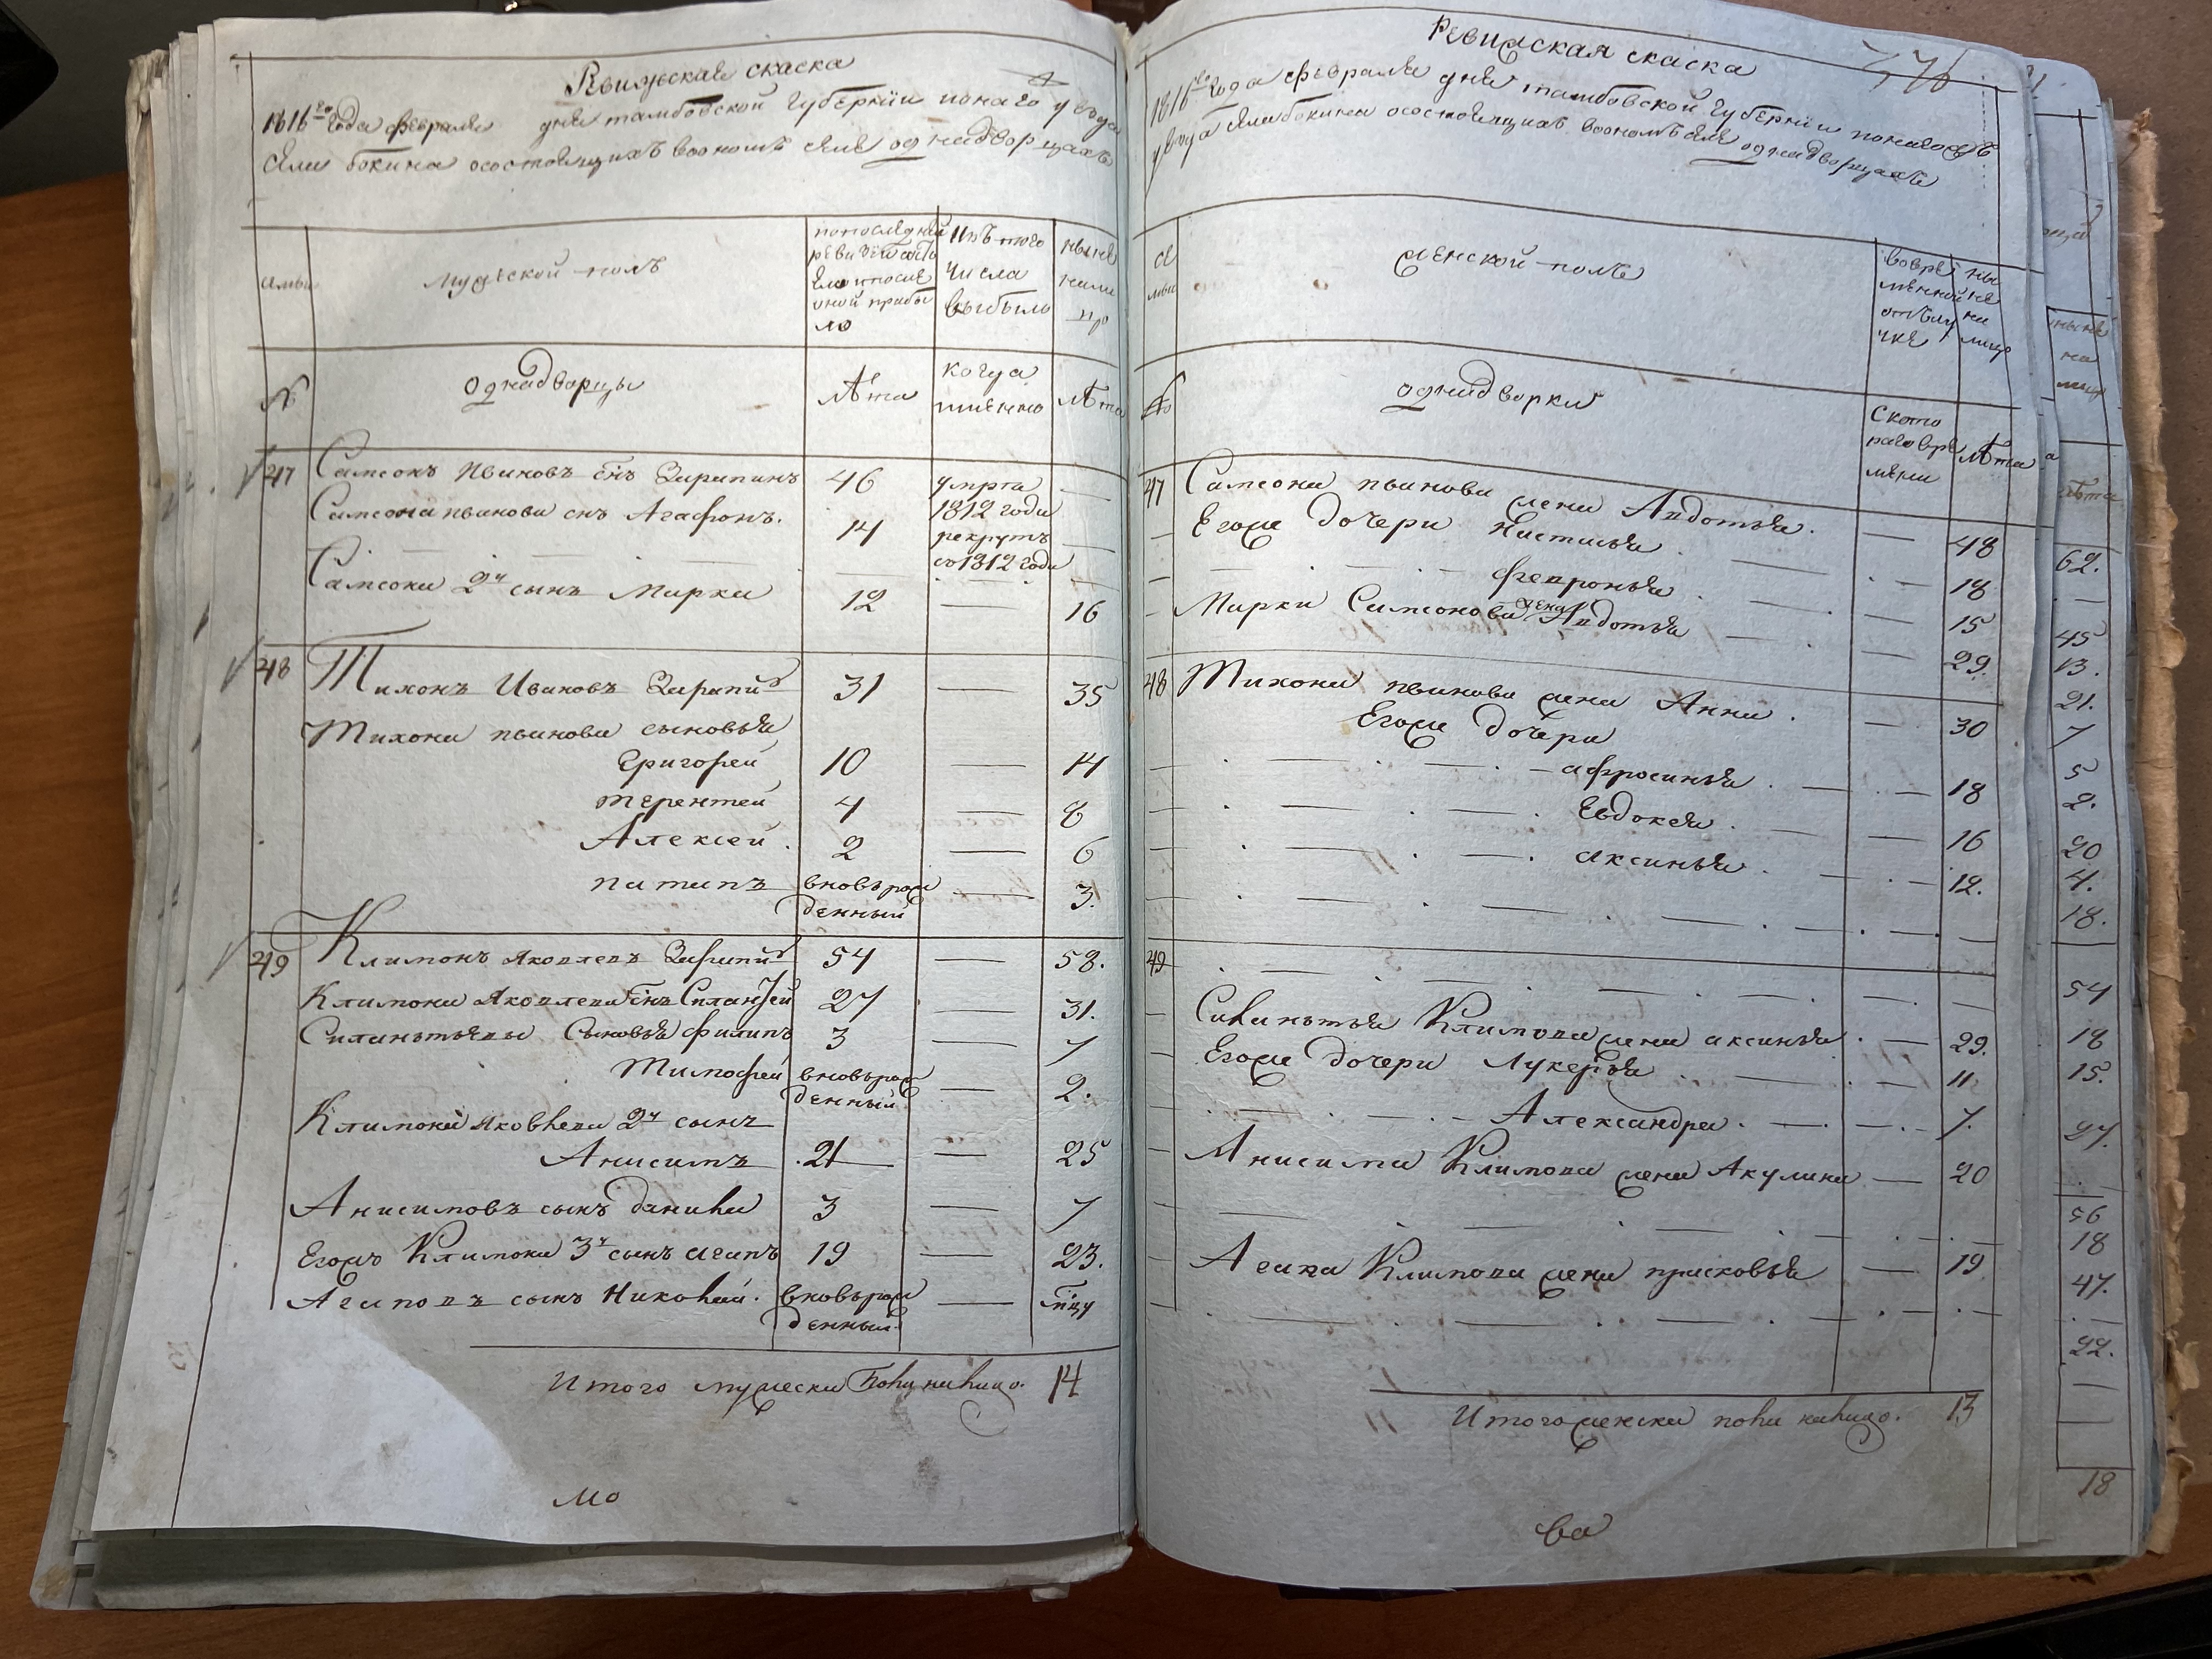 Ревижская скаска
1816го года февраля дня тамбовской губернии
села бокина осостоящихъ воономъ селе однадворцахъ
мужской полъ
попоследней ревизии состояло ипосле оной прибыло
Изъ того числа выбыло
ныне налицо
№
однадворцы
лѣта
когда имянно
лѣта
47 Самсонъ ивановъ снъ Зарапинъ 46 умре 1812 года —
Самсона иванова снъ Агафонъ. 14 рекрутъ со 1812 года —
Самсона 2й сынъ Марка 12 — 16
48 Тихонъ Ивановъ Зарапинъ 31 — 35
Тихона иванова сыновья
Григорей 10 — 14
терентей 4 — 8
Алексей. 2 — 6
патапъ вновьрожденный — 3.
49 Климонъ яковлевъ Зарапинъ 54 — 58.
Климона яковлева снъ Силантей 27 — 31.
Силантьевы Сыновья филипъ 3 — 7
Тимофей вновьрожденный — 2.
Климона яковлева 2й сынъ
Анисимъ 21 — 25
Анисимовъ сынъ данила 3 — 7
Егожъ Климона 3й сынъ агапъ 19 — 23.
Агаповъ сынъ Николай. вновьрожденный —
Итого мужеска пола налицо. 14
мо
Ревижская скаска
276
1816го года февраля дня тамбовской губернии
уезда села бокина осостоящихъ воономъ селе однадворцахъ
семьи
женской полъ
вовременной отлучке
ныне налицо
№
однадворки
Скотораго времени
лѣта
47 Самсона иванова жена Авдотья. — 48
Егоже дочери Настасья. — 18
февронья. — 15
Марки Самсонова жена Авдотья — 29.
48 Тихона иванова жена Анна. — 30
Егоже дочери
афросинья. — 18
Евдокея. — 16
аксинья. — 12.
49 —
Силантья Климова жена аксинья. — 29.
Егоже дочери Лукерья — 11
Александра. — 7.
Анисима Климова жена Акулина — 20
Агапа Климова жена прасковья — 19
Итого женска пола налицо. 13
ва
ныне
на
лицо
лѣта
62.
45
13.
21.
7
5
2.
20
4.
18.
54
18
15.
27.
56
18
47.
22.
18